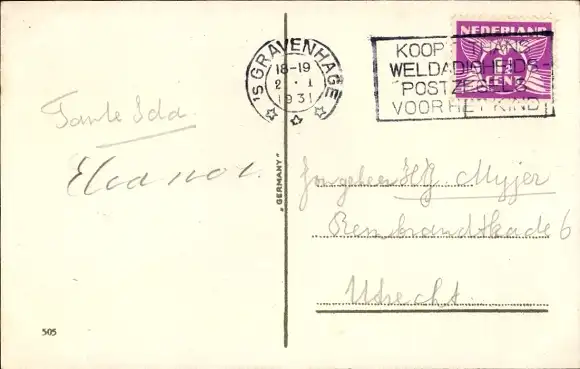 NEDERLAND
'S GRAVENHAGE
18-19
2 . I
1931
KOOP THANS
WELDADIGHEIDS-
POSTZEGELS
VOOR HET KIND
Tante Ida
Eleanor.
„GERMANY"
Jongeheer Myjer
Rembrandtkade 6
Utrecht.
505